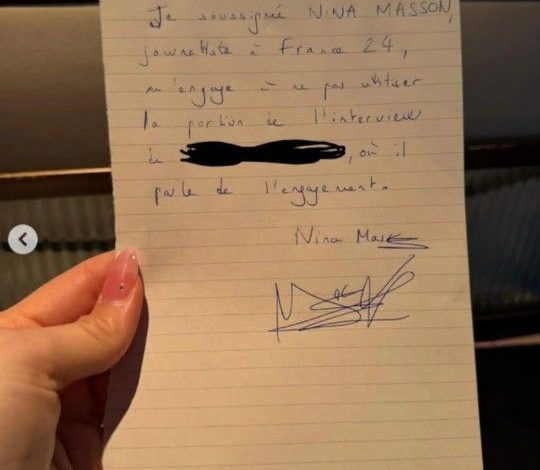 Je soussigné NINA MASSON,
journaliste à France 24,
m'engage à ne pas utiliser
la portion de l'interview
de , où il
parle de l'engagement.
Nina Mas